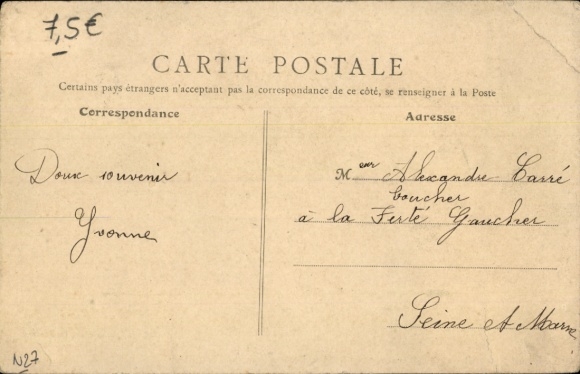 7,5€
CARTE POSTALE
Certains pays étrangers n'acceptant pas la correspondance de ce côté, se renseigner à la Poste
Correspondance
Adresse
Doux souvenir
Yvonne
Meur Alexandre Carré
boucher
à la Ferté Gaucher
Seine et Marne
N27